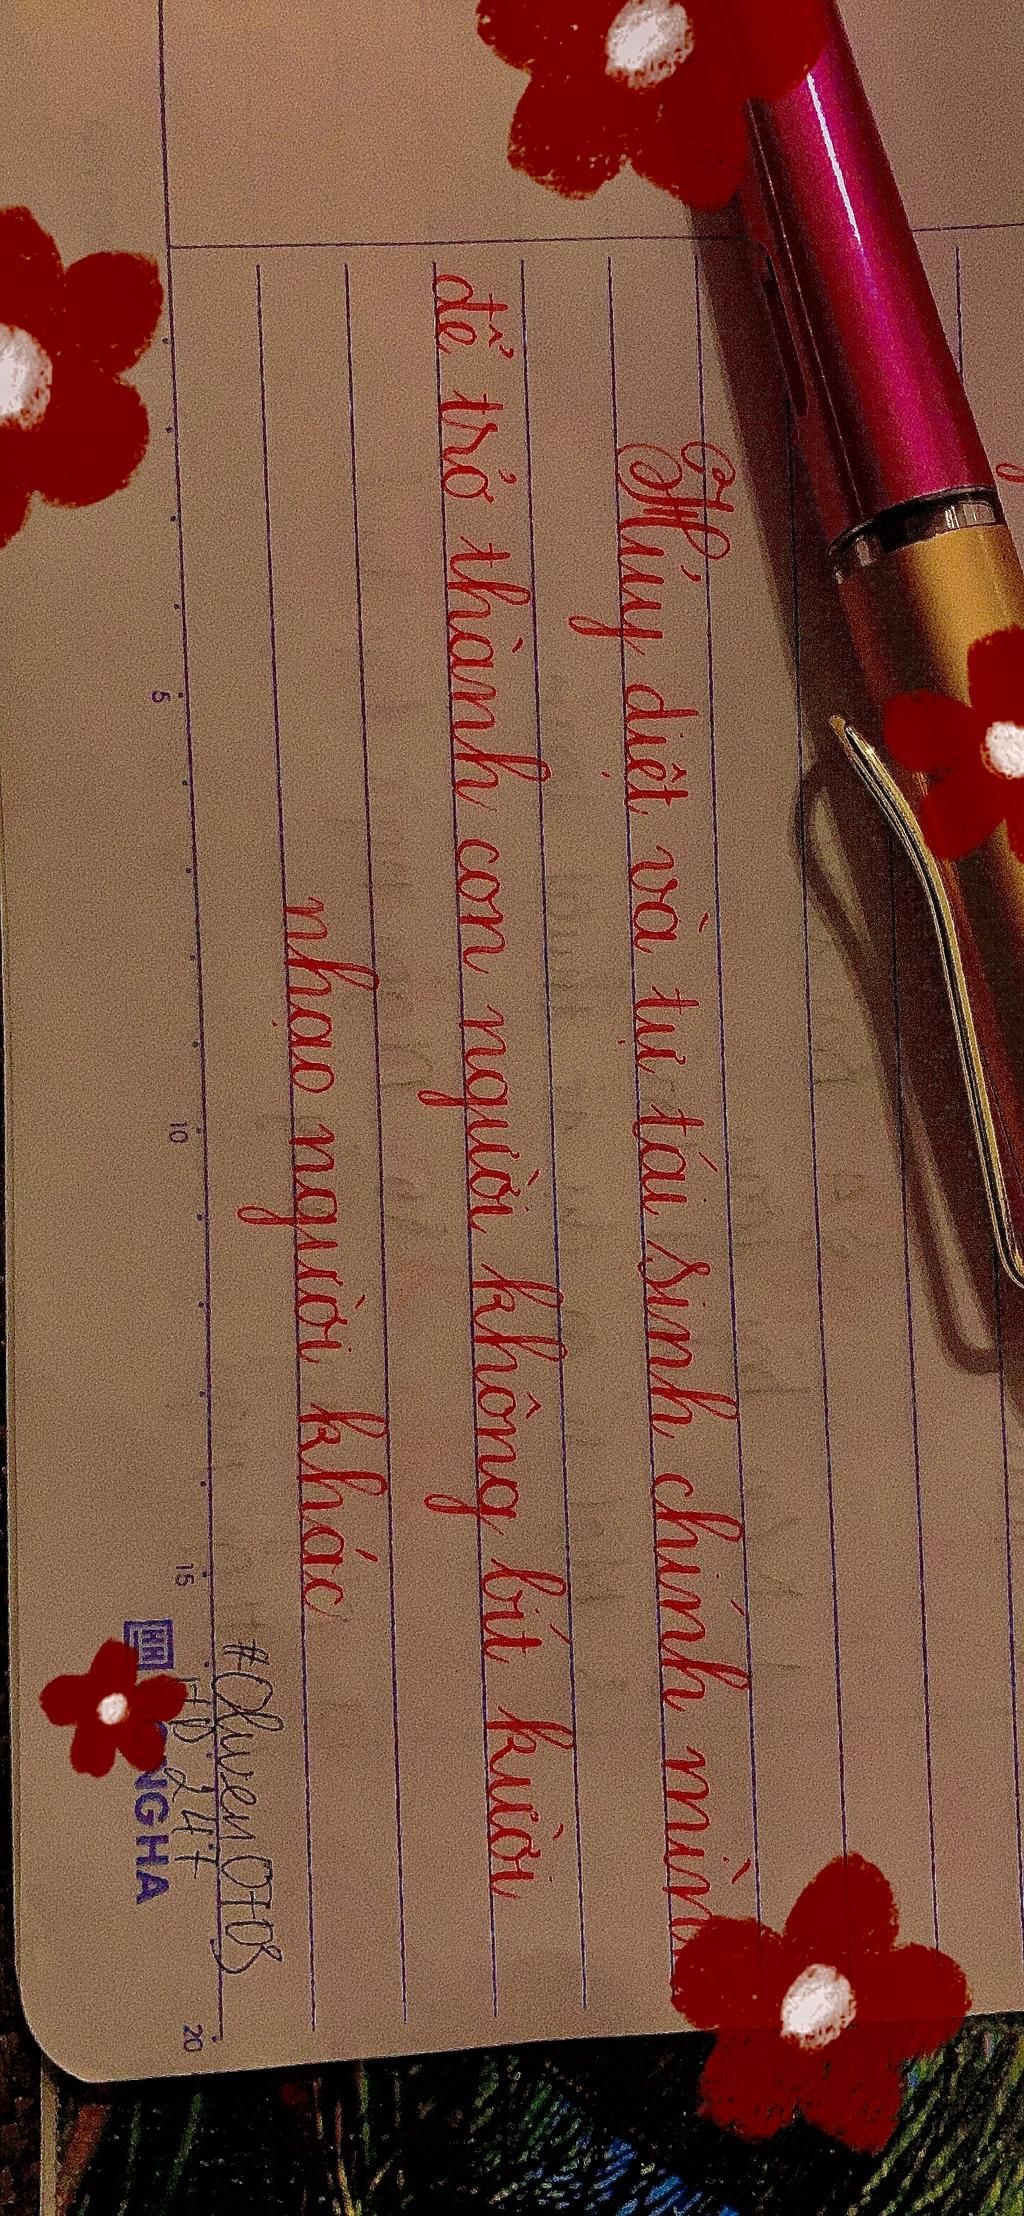 Thủy diệt và tự tái sinh chính mình
để trở thành con người không bít kười
nhạo người khác
#Oliwen0708
5
10
15
20
NGHA